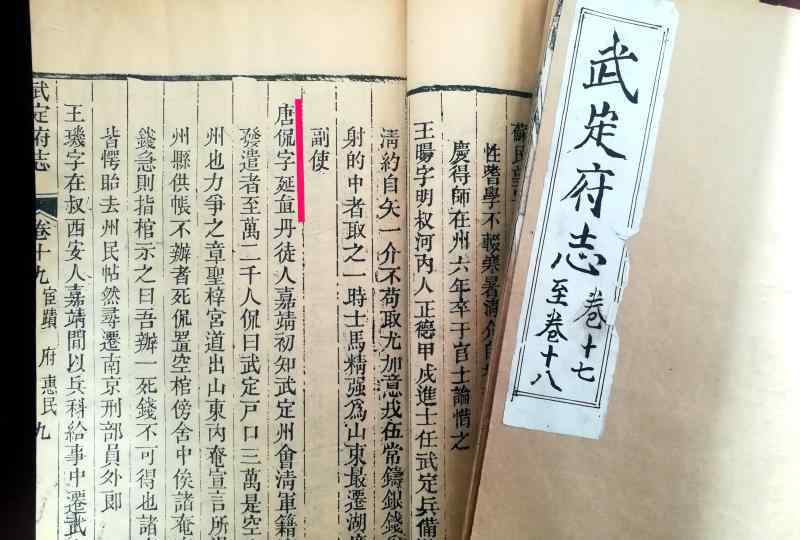 武定府志
卷十七
至卷十八
性耆學不輟寒暑清介自
慶得師在州六年卒于官士論惜之
王暘字明叔河內人正德甲戌進士任武定兵備
淸約自矢一介不苟取尤加意戎伍常鑄銀錢
射的中者取之一時士馬精强爲山東最遷湖
副使
唐侃字延直丹徒人嘉靖初知武定州會淸軍籍
發遣者至萬二千人侃曰武定戶口三萬是空
州也力爭之章聖梓宮道出山東內奄宣言所
州縣供帳不辦者死侃置空棺傍舍中俟諸奄
錢急則指棺示之曰吾辦一死錢不可得也諸
皆愕眙去州民帖然尋遷南京刑部員外郎
王璣字在叔西安人嘉靖間以兵科給事中遷武
武定府志 卷十九 宦蹟 府 惠民 九